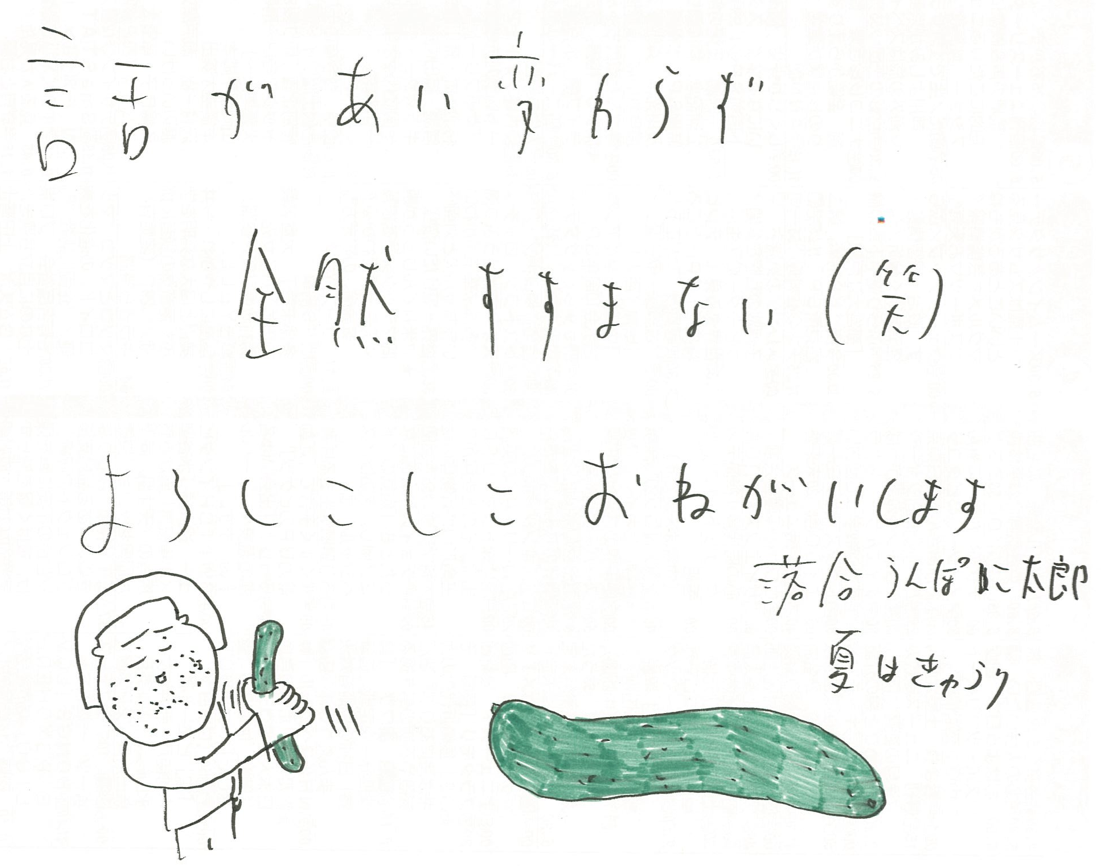 話があい変わらず
全然すすまない(笑)
よろしこしこおねがいします
落合うんぽに太郎
夏はきゅうり